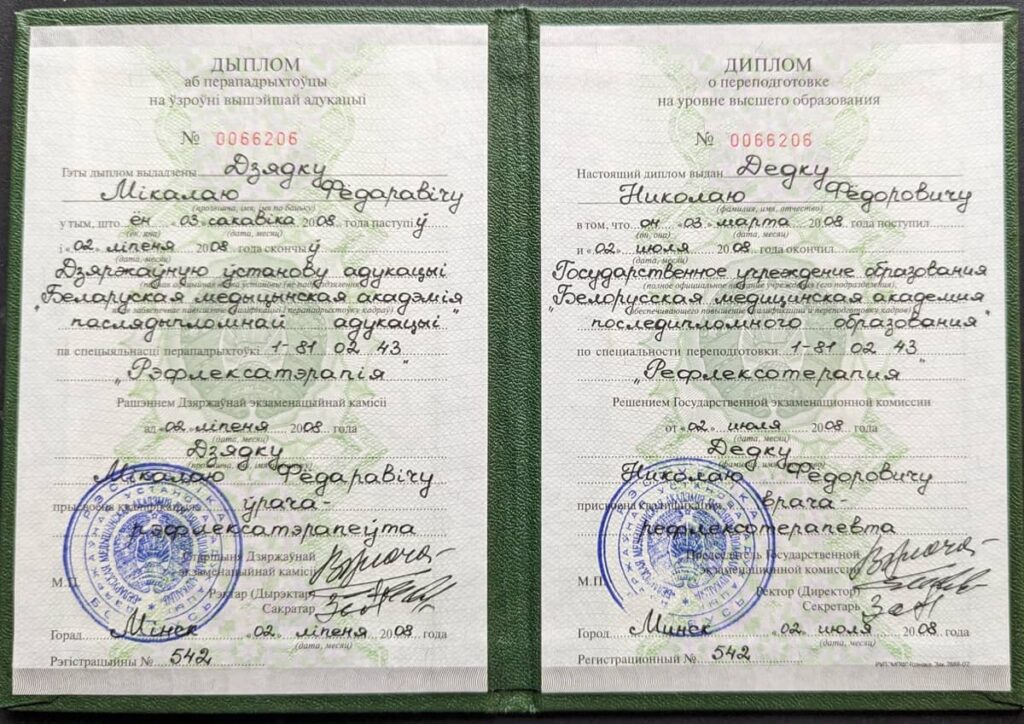 ДЫПЛОМ
аб перападрыхтоўцы
на ўзроўні вышэйшай адукацыі
№ 0066206
Гэты дыплом выдадзены Дзядку
Мікалаю Федаравічу
(прозвішча, імя, імя па бацьку)
у тым, што ён «03» сакавіка 2008 года паступіў
(ён, яна) (дата, месяц)
і «02» ліпеня 2008 года скончыў
(дата, месяц)
Дзяржаўную ўстанову адукацыі
"Беларуская медыцынская акадэмія
паслядыпломнай адукацыі"
па спецыяльнасці перападрыхтоўкі 1-81 02 43
"Рэфлексатэрапія"
Рашэннем Дзяржаўнай экзаменацыйнай камісіі
ад «02» ліпеня 2008 года
(дата, месяц)
Дзядку
Мікалаю Федаравічу
прысвоена кваліфікацыя ўрача-
рэфлексатэрапеўта
Старшыня Дзяржаўнай
экзаменацыйнай камісіі
М.П.
Рэктар (Дырэктар)
Сакратар
Горад Мінск «02» ліпеня 2008 года
(дата, месяц)
Рэгістрацыйны № 542
ДИПЛОМ
о переподготовке
на уровне высшего образования
№ 0066206
Настоящий диплом выдан Дедку
Николаю Федоровичу
(фамилия, имя, отчество)
в том, что он «03» марта 2008 года поступил
(он, она) (дата, месяц)
и «02» июля 2008 года окончил
(дата, месяц)
Государственное учреждение образования
(полное официальное название учреждения (его подразделения),
"Белорусская медицинская академия
обеспечивающего повышение квалификации и переподготовку кадров)
последипломного образования"
по специальности переподготовки 1-81 02 43
"Рефлексотерапия"
Решением Государственной экзаменационной комиссии
от «02» июля 2008 года
(дата, месяц)
Дедку
Николаю Федоровичу
присвоена квалификация врача-
рефлексотерапевта
Председатель Государственной
экзаменационной комиссии
М.П.
Ректор (Директор)
Секретарь
Город Минск «02» июля 2008 года
(дата, месяц)
Регистрационный № 542